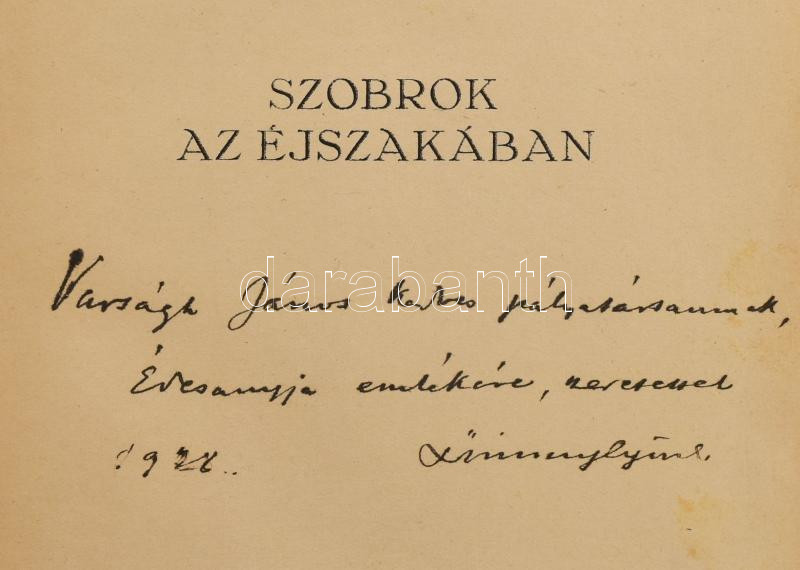 SZOBROK
AZ ÉJSZAKÁBAN
darabanth
Varságh János kedves pályatársamnak,
Édesanyja emlékére, szeretettel
1928.